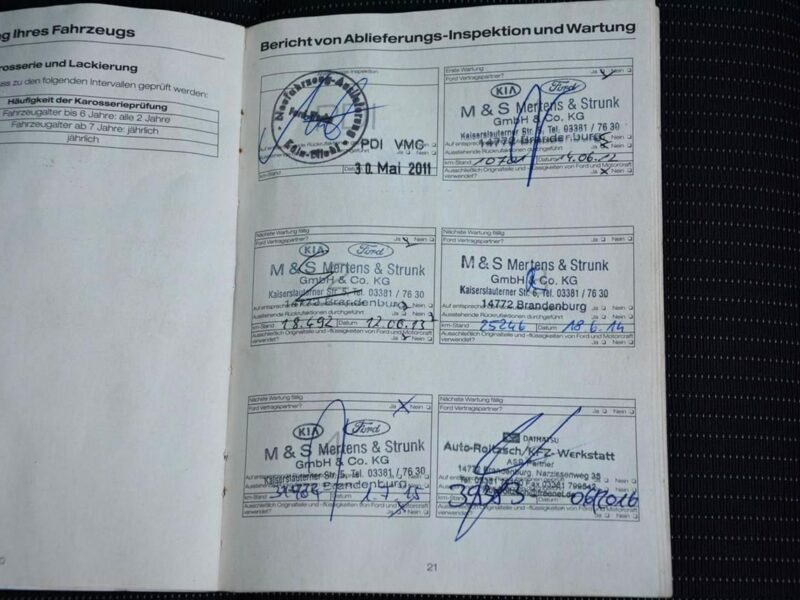 g Ihres Fahrzeugs
rosserie und Lackierung
ss zu den folgenden Intervallen geprüft werden:
Häufigkeit der Karosserieprüfung
Fahrzeugalter bis 6 Jahre: alle 2 Jahre
Fahrzeugalter ab 7 Jahre: jährlich
jährlich
Bericht von Ablieferungs-Inspektion und Wartung
Neufahrzeug-Auslieferung
Köln-Niehl
PDI VMC
km-Stand
30. Mai 2011
Erste Wartung
Ford Vertragspartner? Ja Nein
KIA Ford
M & S Mertens & Strunk
GmbH & Co. KG
Kaiserslauterner Str. 5, Tel. 03381 / 76 30
14772 Brandenburg
Ausstehende Rückrufaktionen durchgeführt Ja Nein
km-Stand 10701 Datum 14.06.12
Ausschließlich Originalteile und -flüssigkeiten von Ford und Motorcraft
verwendet? Ja Nein
Nächste Wartung fällig
Ford Vertragspartner? Ja Nein
KIA Ford
M & S Mertens & Strunk
GmbH & Co. KG
Kaiserslauterner Str. 5, Tel. 03381 / 76 30
14772 Brandenburg
Ausstehende Rückrufaktionen durchgeführt Ja Nein
km-Stand 18.492 Datum 12.06.13
Ausschließlich Originalteile und -flüssigkeiten von Ford und Motorcraft
verwendet? Ja Nein
Nächste Wartung fällig
Ford Vertragspartner? Ja Nein
M & S Mertens & Strunk
GmbH & Co. KG
Kaiserslauterner Str. 5, Tel. 03381 / 76 30
14772 Brandenburg
Ausstehende Rückrufaktionen durchgeführt Ja Nein
km-Stand 25246 Datum 18.6.14
Ausschließlich Originalteile und -flüssigkeiten von Ford und Motorcraft
verwendet? Ja Nein
Nächste Wartung fällig
Ford Vertragspartner? Ja Nein
KIA Ford
M & S Mertens & Strunk
GmbH & Co. KG
Kaiserslauterner Str. 5, Tel. 03381 / 76 30
14772 Brandenburg
km-Stand Datum 1.7.15
Ausschließlich Originalteile und -flüssigkeiten von Ford und Motorcraft
verwendet? Ja
Nächste Wartung fällig
Ford Vertragspartner? Ja Nein
DAIHATSU
Auto-Roitzsch/KFZ-Werkstatt
ASP Partner
14772 Brandenburg, Narzissenweg 35
km-Stand 06/2016
Ausschließlich Originalteile und -flüssigkeiten von Ford und Motorcraft
verwendet? Ja Nein
21